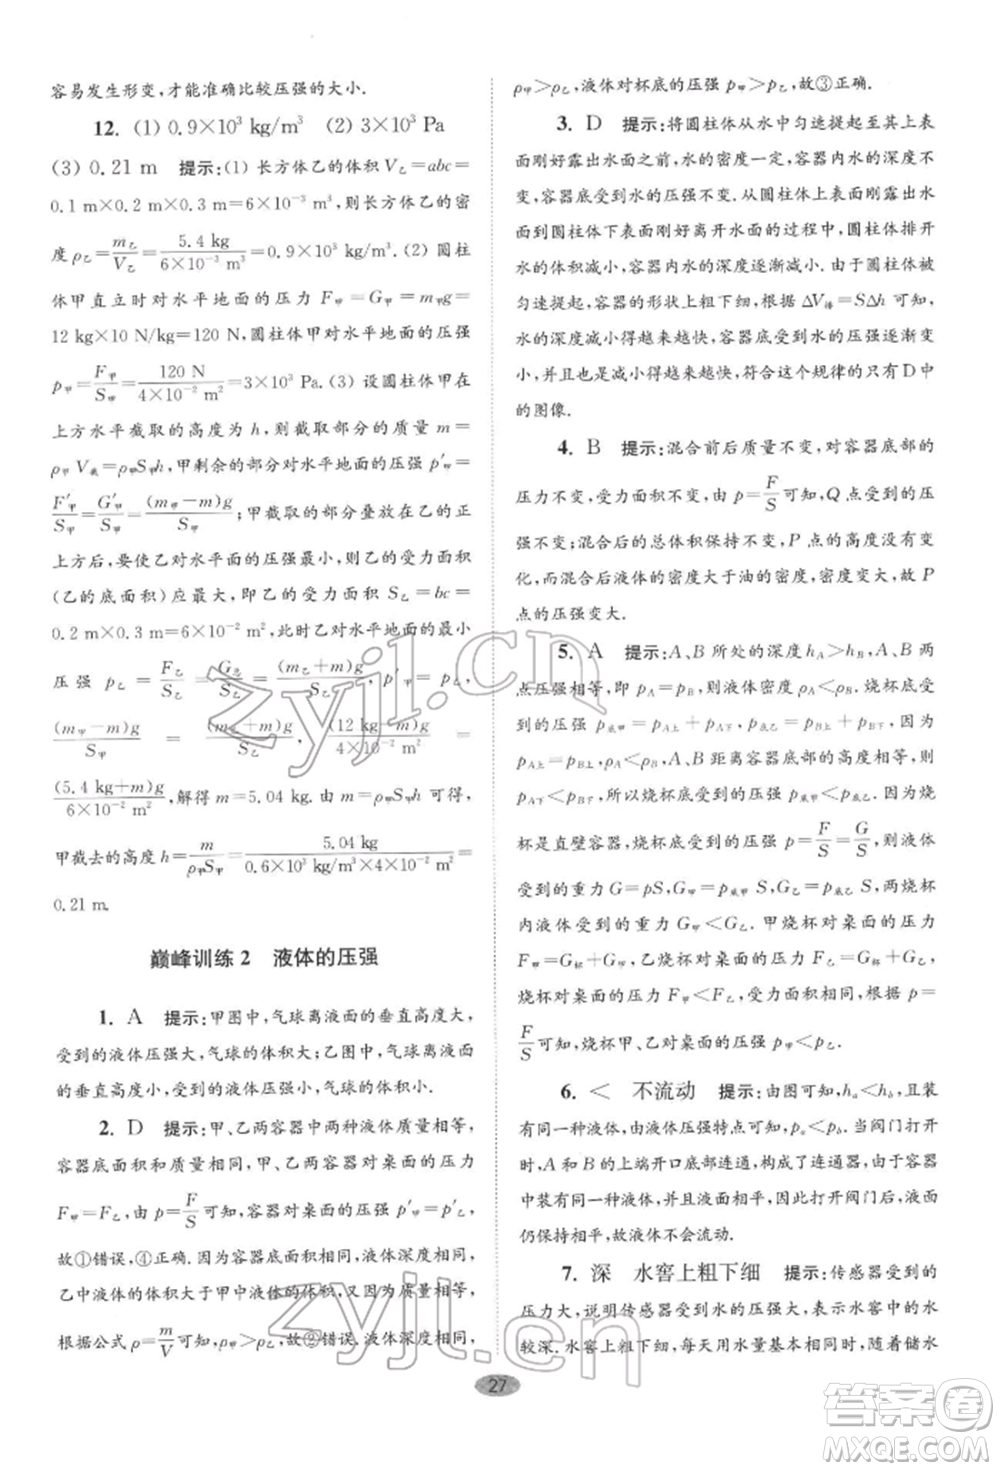 容易发生形变,才能准确比较压强的大小.
12. (1) 0.9×10³ kg/m³ (2) 3×10³ Pa
(3) 0.21 m 提示:(1) 长方体乙的体积 V乙=abc=
0.1 m×0.2 m×0.3 m=6×10⁻³ m³,则长方体乙的密
度 ρ乙=m乙/V乙=5.4 kg/(6×10⁻³ m³)=0.9×10³ kg/m³.(2) 圆柱
体甲直立时对水平地面的压力 F甲=G甲=m甲g=
12 kg×10 N/kg=120 N,圆柱体甲对水平地面的压强
p甲=F甲/S甲=120 N/(4×10⁻² m²)=3×10³ Pa.(3) 设圆柱体甲在
上方水平截取的高度为 h,则截取部分的质量 m=
ρ甲V截=ρ甲S甲h,甲剩余的部分对水平地面的压强 p′甲=
F′甲/S甲=G′甲/S甲=(m甲-m)g/S甲;甲截取的部分叠放在乙的正
上方后,要使乙对水平面的压强最小,则乙的受力面积
(乙的底面积)应最大,即乙的受力面积 S乙=bc=
0.2 m×0.3 m=6×10⁻² m²,此时乙对水平地面的最小
压强 p乙=F乙/S乙=G乙/S乙=(m乙+m)g/S乙
(m甲-m)g/S甲=(m乙+m)g/S乙=(12 kg-m)g/(4×10⁻² m²)=
(5.4 kg+m)g/(6×10⁻² m²),解得 m=5.04 kg. 由 m=ρ甲S甲h 可得,
甲截去的高度 h=m/(ρ甲S甲)=5.04 kg/(0.6×10³ kg/m³×4×10⁻² m²)=
0.21 m.
巅峰训练 2 液体的压强
1. A 提示:甲图中,气球离液面的垂直高度大,
受到的液体压强大,气球的体积大;乙图中,气球离液面
的垂直高度小,受到的液体压强小,气球的体积小.
2. D 提示:甲、乙两容器中两种液体质量相等,
容器底面积与质量相同,甲、乙两容器对桌面的压力
F甲=F乙,由 p=F/S 可知,容器对桌面的压强 p′甲=p′乙,
故①错误,④正确.因为容器底面积相同,液体深度相同,
乙中液体的体积大于甲中液体的体积,液体质量相同,
根据公式 ρ=m/V 可知,ρ甲>ρ乙,故②错误.液体深度相同,
ρ甲>ρ乙,液体对杯底的压强 p甲>p乙,故③正确.
3. D 提示:将圆柱体从水中匀速提起,在圆柱体上表
面刚好露出水面之前,水的密度一定,容器内水的深度不
变,容器底受到水的压强不变.从圆柱体上表面刚好露出水
面到圆柱体下表面刚好离开水面的过程中,圆柱体排开
水的体积减小,容器内水的深度减小.由于圆柱体被
匀速提起,容器的形状上粗下细,由 ΔV排=SΔh 可知,
水的深度减小得越来越快,容器底受到水的压强逐渐变
小,并且减小得越来越快,符合这个规律的只有 D 中
的图像.
4. B 提示:混合前后质量不变,对容器底部的
压力不变,受力面积不变,由 p=F/S 可知,Q 点受到的压
强不变;混合后的总体积保持不变,P 点的深度不
变,而混合后液体的密度大于油的密度,密度变大,故 P
点的压强变大.
5. A 提示:A、B 所处的深度 hA>hB,A、B 两
点压强相等,即 pA=pB,则液体密度 ρA<ρB.烧杯底受
到的压强 p底甲=pA上+pA下,p底乙=pB上+pB下,而
pA上=pB上,A、B 距离容器底的高度相同,ρA<ρB,则
pA下<pB下,所以烧杯底受到的压强 p底甲<p底乙.因为烧
杯是直壁容器,烧杯底受到的压强 p=F/S=G/S,则液体
受到的重力 G=pS,又因为 p底甲 S<p底乙 S,两烧杯
内液体受到的重力 G甲<G乙.甲烧杯对桌面的压力
F甲=G杯+G甲,乙烧杯对桌面的压力 F乙=G杯+G乙,
烧杯对桌面的压力 F甲<F乙,受力面积相同,根据 p=
F/S 可知,烧杯甲、乙对桌面的压强 p甲<p乙.
6. < 不流动 提示:由图可知,ha<hb,且装
有同一种液体,由液体压强特点可知,pa<pb.当阀门打开
时,A 和 B 的上端开口底部连通,构成了连通器,由于容器
中装有同一种液体,且液面相平,因此打开阀门后,液面
仍保持相平,故液体不会流动.
7. 深 水窖上粗下细 提示:传感器受到的
压力大,说明传感器受到的水的压强大,表示水窖中的水
较深.水窖上粗下细,每天用水量基本相同,随着储水
27
zyjl.cn
zyjl.cn
答案圈
MXQE.COM